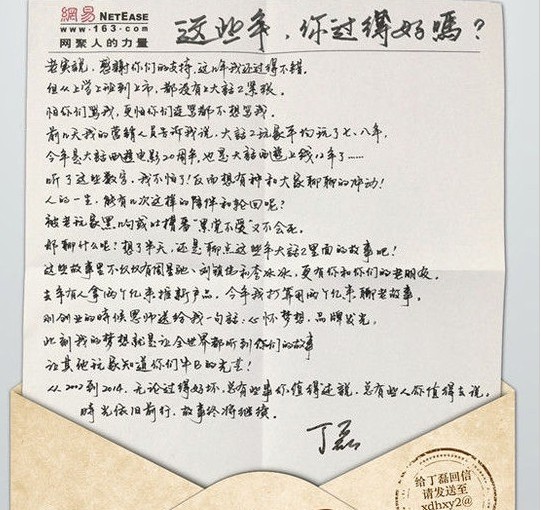 網易 NETEASE
www.163.com
网聚人的力量
这些年，你过得好嗎？
老实说，感谢你们的支持，这几年我还过得不错。
但从上学上班到上市，都没有上大话2累张。
怕你们骂我，更怕你们连骂都不想骂我。
前几天我的营销人员告诉我说，大话2玩家平均玩了七、八年，
今年是大话西遊电影20周年，也是大话西遊上线12年了……
听了这些数字，我不怕了！反而想有种和大家聊聊的冲动！
人的一生，能有几次这样的陪伴和轮回呢？
被老玩家黑几句或吐槽着“累觉不爱”又不会死。
那聊什么呢？想了半天，还是聊点这些年大话2里面的故事吧！
这些故事里不仅仅有周星驰、刘镇伟和李冰冰，更有你和你们的老朋友。
去年有人拿两个亿来推新产品，今年我打算用两个亿来聊老故事。
刚创业的时候恩师送给我一句话：心怀梦想，品牌发光，
此刻我的梦想就是让全世界都听到你们的故事
让其他玩家知道你们牛B的光芒！
从2002到2014，无论过得好坏，总有些事你值得述说，总有些人你值得去说。
时光依旧前行，故事终将继续。
丁磊
给丁磊回信
请发送至
xdhxy2@